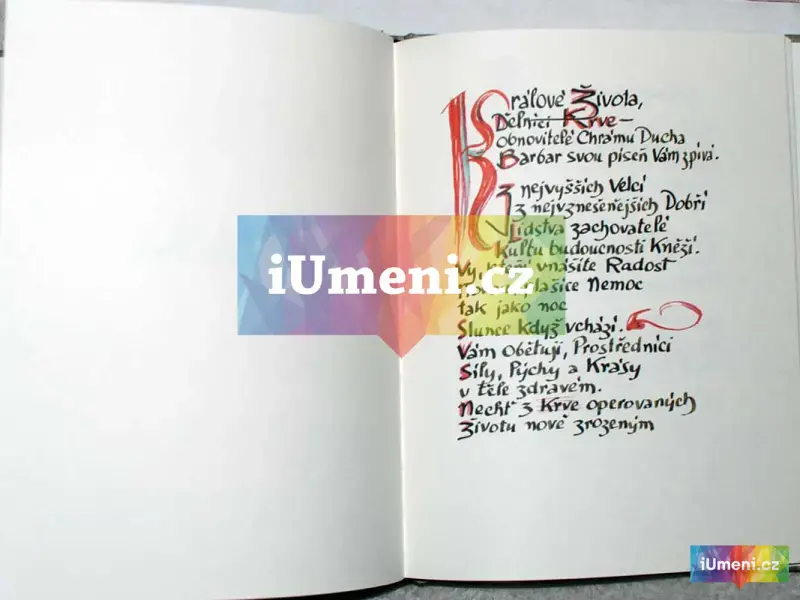 Králové Života,
Dělníci Krve –
obnovitelé Chrámu Ducha
Barbar svou píseň Vám zpívá.
Z nejvyšších Velcí
z nejvznešenějších Dobří
Lidstva zachovatelé
Kultu budoucnosti Kněží.
Vy, kteří vnášíte Radost
Nemoc
tak jako noc
Slunce když vchází.
Vám Obětují, Prostředníci
Síly, Pýchy a Krásy
v těle zdravém.
Nechť z Krve operovaných
Životu nově zrozeným
iUmeni.cz
iUmeni.cz